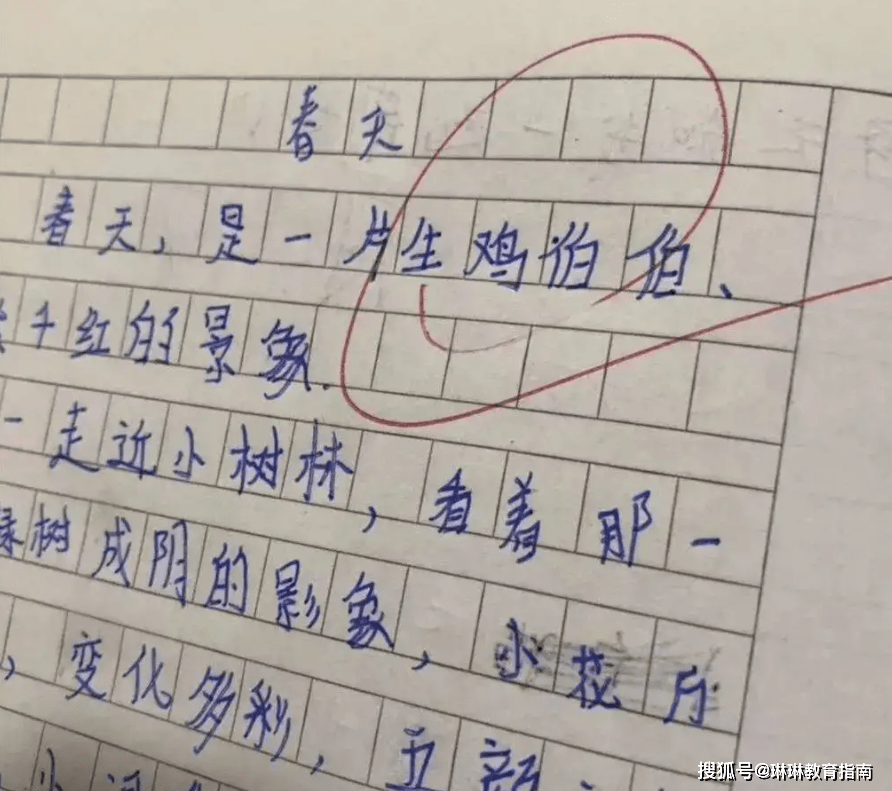 春天
春天，是一片生鸡伯伯、
千红的景象.
一走近小树林，看着那一
树成阴的影象，小花片
，变化多彩，五颜
搜狐号@琳琳教育指南